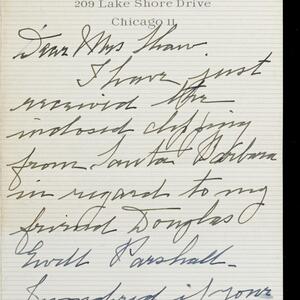 209 Lake Shore Drive
Chicago 11
Dear Mrs Shaw.
I have just
received the
inclosed clipping
from Santa Barbara
in regard to my
friend Douglas
Ewell Parshall.
I wondered if your